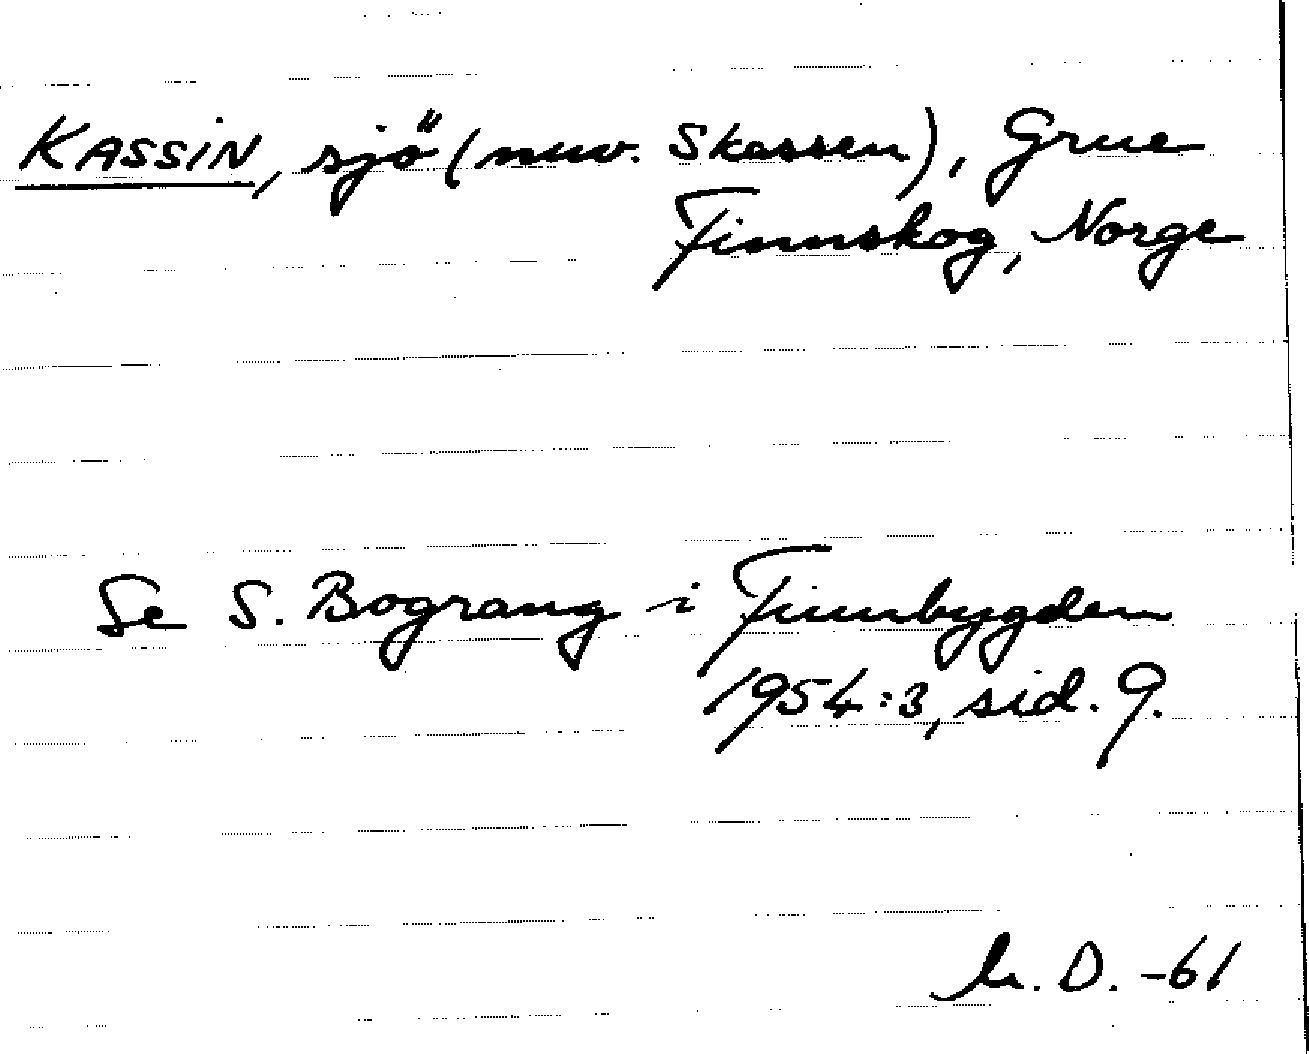 KASSIN, sjö (nuv. Skassen), Grue
Finnskog, Norge
Se S. Bograng i Finnbygden
1954:3, sid. 9.
M. D. -61